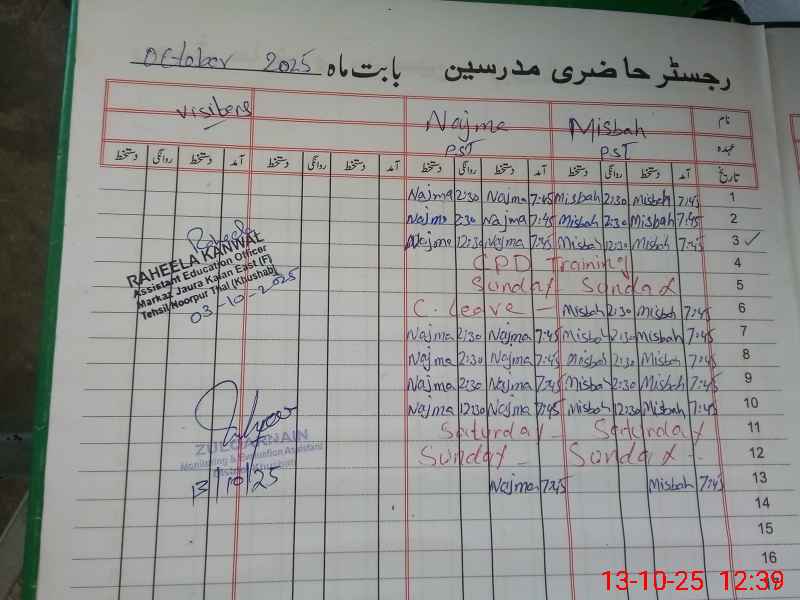 رجسٹر حاضری مدرسین بابت ماہ October 2025
نام Misbah Najma visibers
عہدہ PST PST
تاریخ آمد دستخط روانگی دستخط آمد دستخط روانگی دستخط آمد دستخط روانگی دستخط آمد دستخط روانگی دستخط
Najma 2:30 Najma 7:45 Misbah 2:30 Misbah 7:45 1
Najma 2:30 Najma 7:45 Misbah 2:30 Misbah 7:45 2
Najma 12:30 Najma 7:45 Misbah 12:30 Misbah 7:45 3 ✓
CPD Training 4
Sunday Sunday 5
C. Leave - Misbah 2:30 Misbah 7:45 6
Najma 2:30 Najma 7:45 Misbah 2:30 Misbah 7:45 7
Najma 2:30 Najma 7:45 Misbah 2:30 Misbah 7:45 8
Najma 2:30 Najma 7:45 Misbah 2:30 Misbah 7:45 9
Najma 12:30 Najma 7:45 Misbah 12:30 Misbah 7:45 10
Saturday - Saturday 11
Sunday - Sunday - 12
Najma 7:45 Misbah 7:45 13
14
15
16
17
Raheela
RAHEELA KANWAL
Assistant Education Officer
Markaz Jaura Kalan East (F)
Tehsil Noorpur Thal (Khushab)
03-10-2025
ZULQARNAIN
Monitoring & Evaluation Assistant
District Khushab
13/10/25
13-10-25 12:39